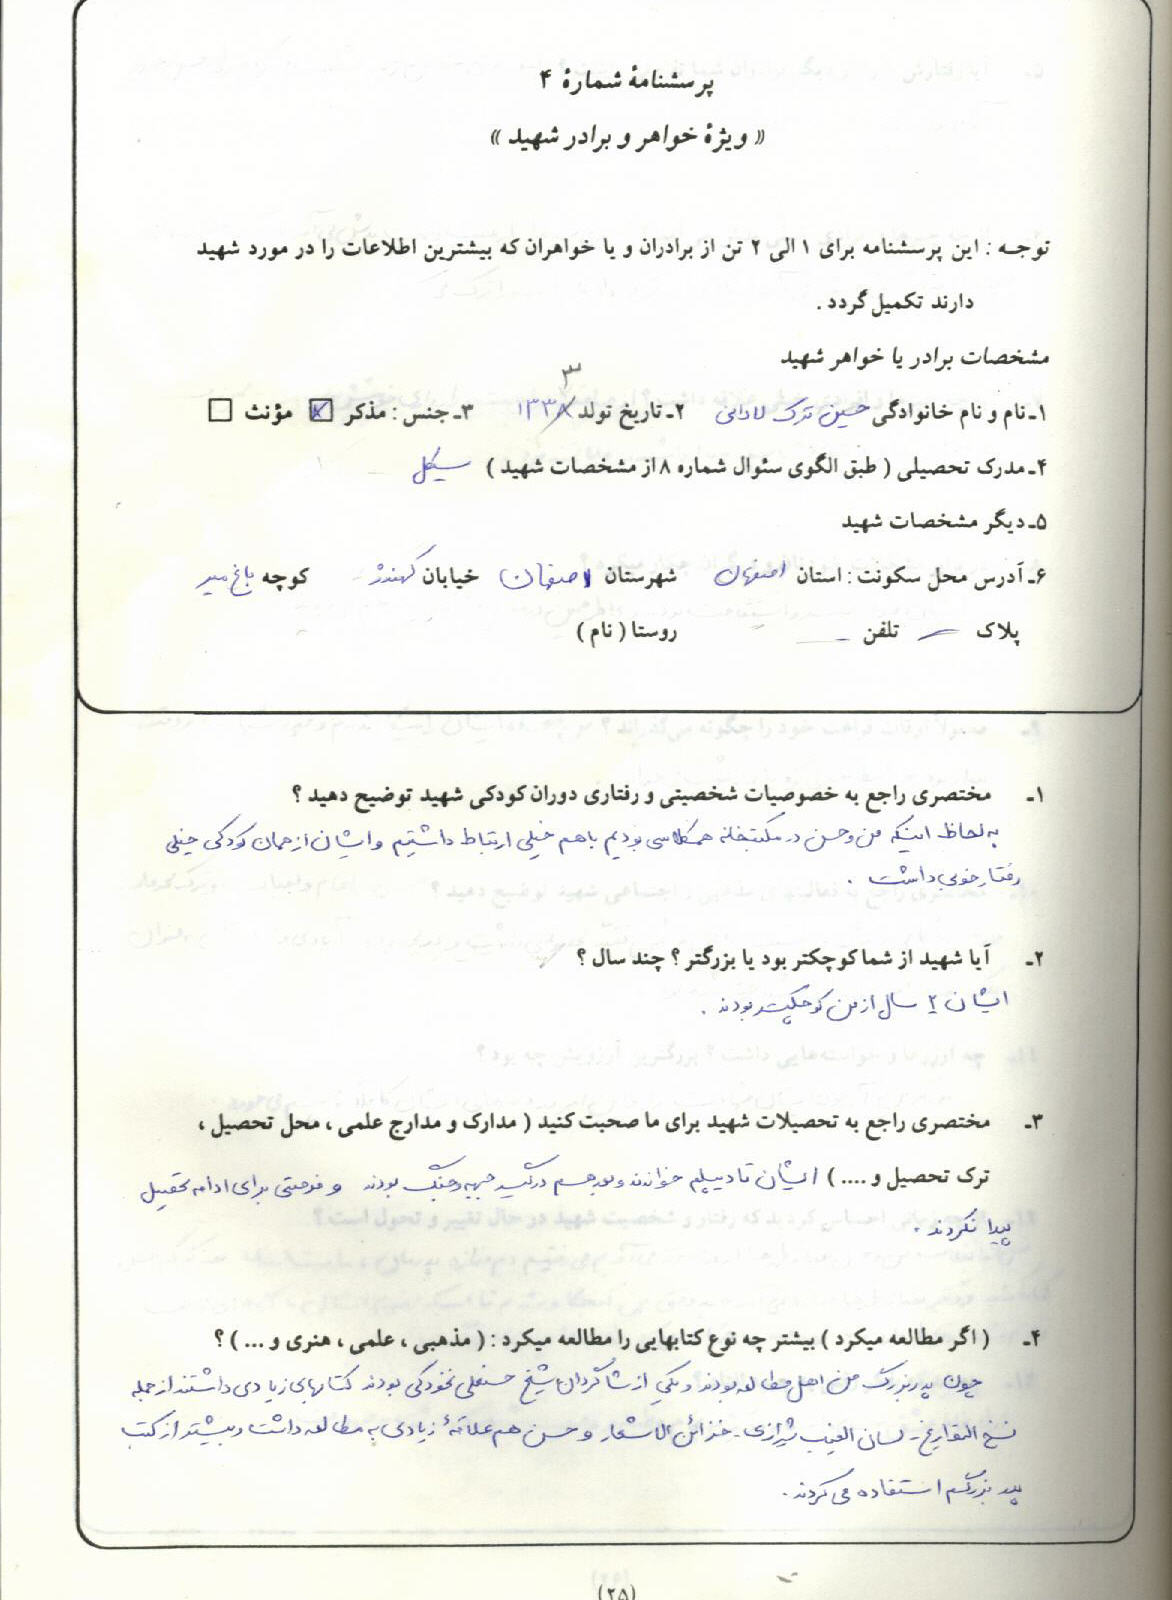 پرسشنامهٔ شمارهٔ ۴
« ویژهٔ خواهر و برادر شهید »
توجه : این پرسشنامه برای ۱ الی ۲ تن از برادران و یا خواهران که بیشترین اطلاعات را در مورد شهید
دارند تکمیل گردد .
مشخصات برادر یا خواهر شهید
۳
۱ـ نام و نام خانوادگی حسین ترک لادانی ۲ـ تاریخ تولد ۱۳۳۸ ۳ـ جنس : مذکر مؤنث
۴ـ مدرک تحصیلی ( طبق الگوی سئوال شماره ۸ از مشخصات شهید ) سیکل
۵ـ دیگر مشخصات شهید
۶ـ آدرس محل سکونت : استان اصفهان شهرستان اصفهان خیابان کهندژ کوچه باغ میر
پلاک ـ تلفن ـ روستا ( نام )
۱ـ مختصری راجع به خصوصیات شخصیتی و رفتاری دوران کودکی شهید توضیح دهید ؟
به لحاظ اینکه من و حسن در مکتبخانه همکلاسی بودیم با هم خیلی ارتباط داشتیم و ایشان از همان کودکی خیلی
رفتار خوبی داشت .
۲ـ آیا شهید از شما کوچکتر بود یا بزرگتر ؟ چند سال ؟
ایشان ۲ سال از من کوچکتر بودند .
۳ـ مختصری راجع به تحصیلات شهید برای ما صحبت کنید ( مدارک و مدارج علمی ، محل تحصیل ،
ترک تحصیل و .... ) ایشان تا دیپلم خواندند و بعد هم درگیر جبهه و جنگ بودند و فرصتی برای ادامه تحصیل
پیدا نکردند .
۴ـ ( اگر مطالعه میکرد ) بیشتر چه نوع کتابهایی را مطالعه میکرد : ( مذهبی ، علمی ، هنری و ... ) ؟
چون پدربزرگ من اهل مطالعه بودند و یکی از شاگردان شیخ حسنعلی نخودکی بودند کتابهای زیادی داشتند از جمله
نسخ التواریخ ـ لسان الغیب شیرازی ـ خزائن الاشعار و حسن هم علاقهٔ زیادی به مطالعه داشت و بیشتر از کتب
پدر بزرگم استفاده می کردند .
(۲۵)